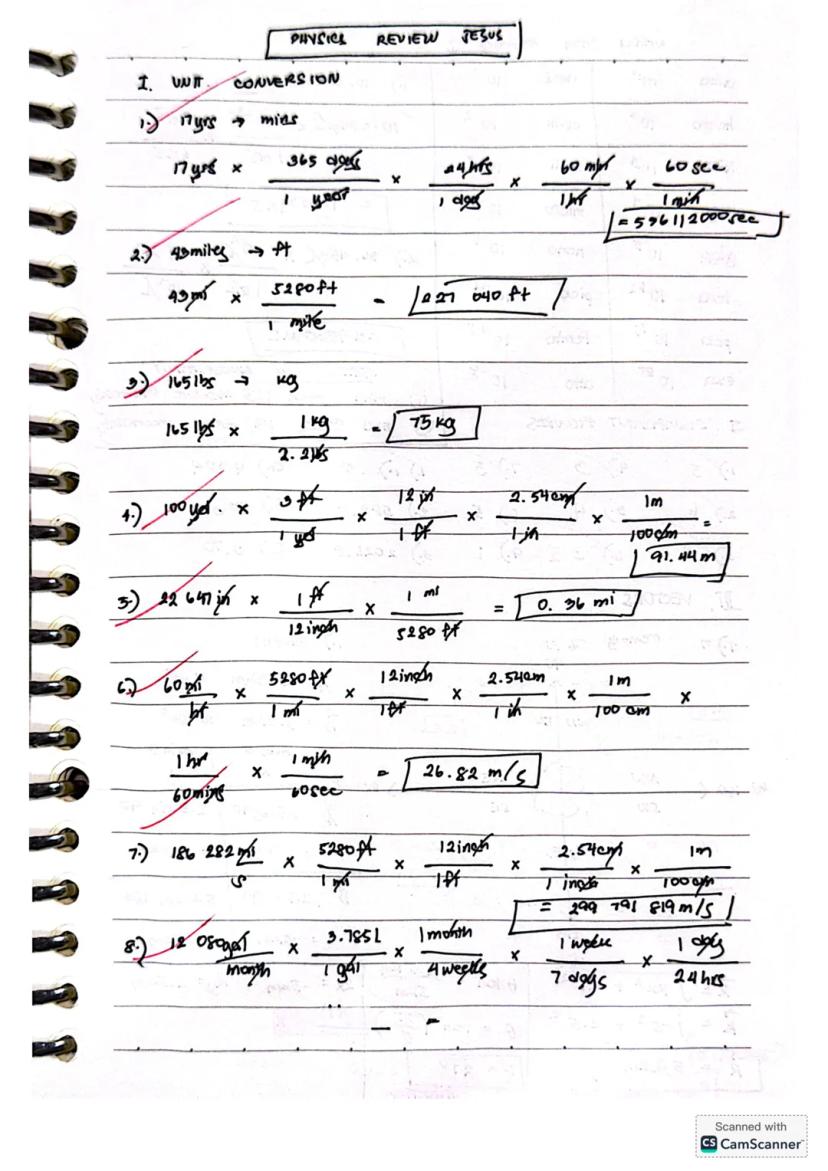 PHYSICS REVIEW JESUS
I. UNIT CONVERSION
1.) 17yrs → mins
17 yrs × 365 days / 1 year × 24 hrs / 1 day × 60 min / 1 hr × 60 sec / 1 min
= 536112000 sec
2.) 43 miles → ft
43 mi × 5280 ft / 1 mile = 227 040 ft
3.) 165 lbs → kg
165 lbs × 1 kg / 2.2 lbs = 75 kg
4.) 100 yd. × 3 ft / 1 yd × 12 in / 1 ft × 2.54 cm / 1 in × 1m / 100 cm =
91.44 m
5.) 22 647 in × 1 ft / 12 inch × 1 mi / 5280 ft = 0.36 mi
6.) 60 mi / hr × 5280 ft / 1 mi × 12 inch / 1 ft × 2.54 cm / 1 in × 1m / 100 cm ×
1 hr / 60 mins × 1 min / 60 sec = 26.82 m/s
7.) 186 282 mi / s × 5280 ft / 1 mi × 12 inch / 1 ft × 2.54 cm / 1 inch × 1m / 100 cm
= 299 791 819 m/s
8.) 12 080 gal / month × 3.785 l / 1 gal × 1 month / 4 weeks × 1 week / 7 days × 1 day / 24 hrs
Scanned with
CS CamScanner